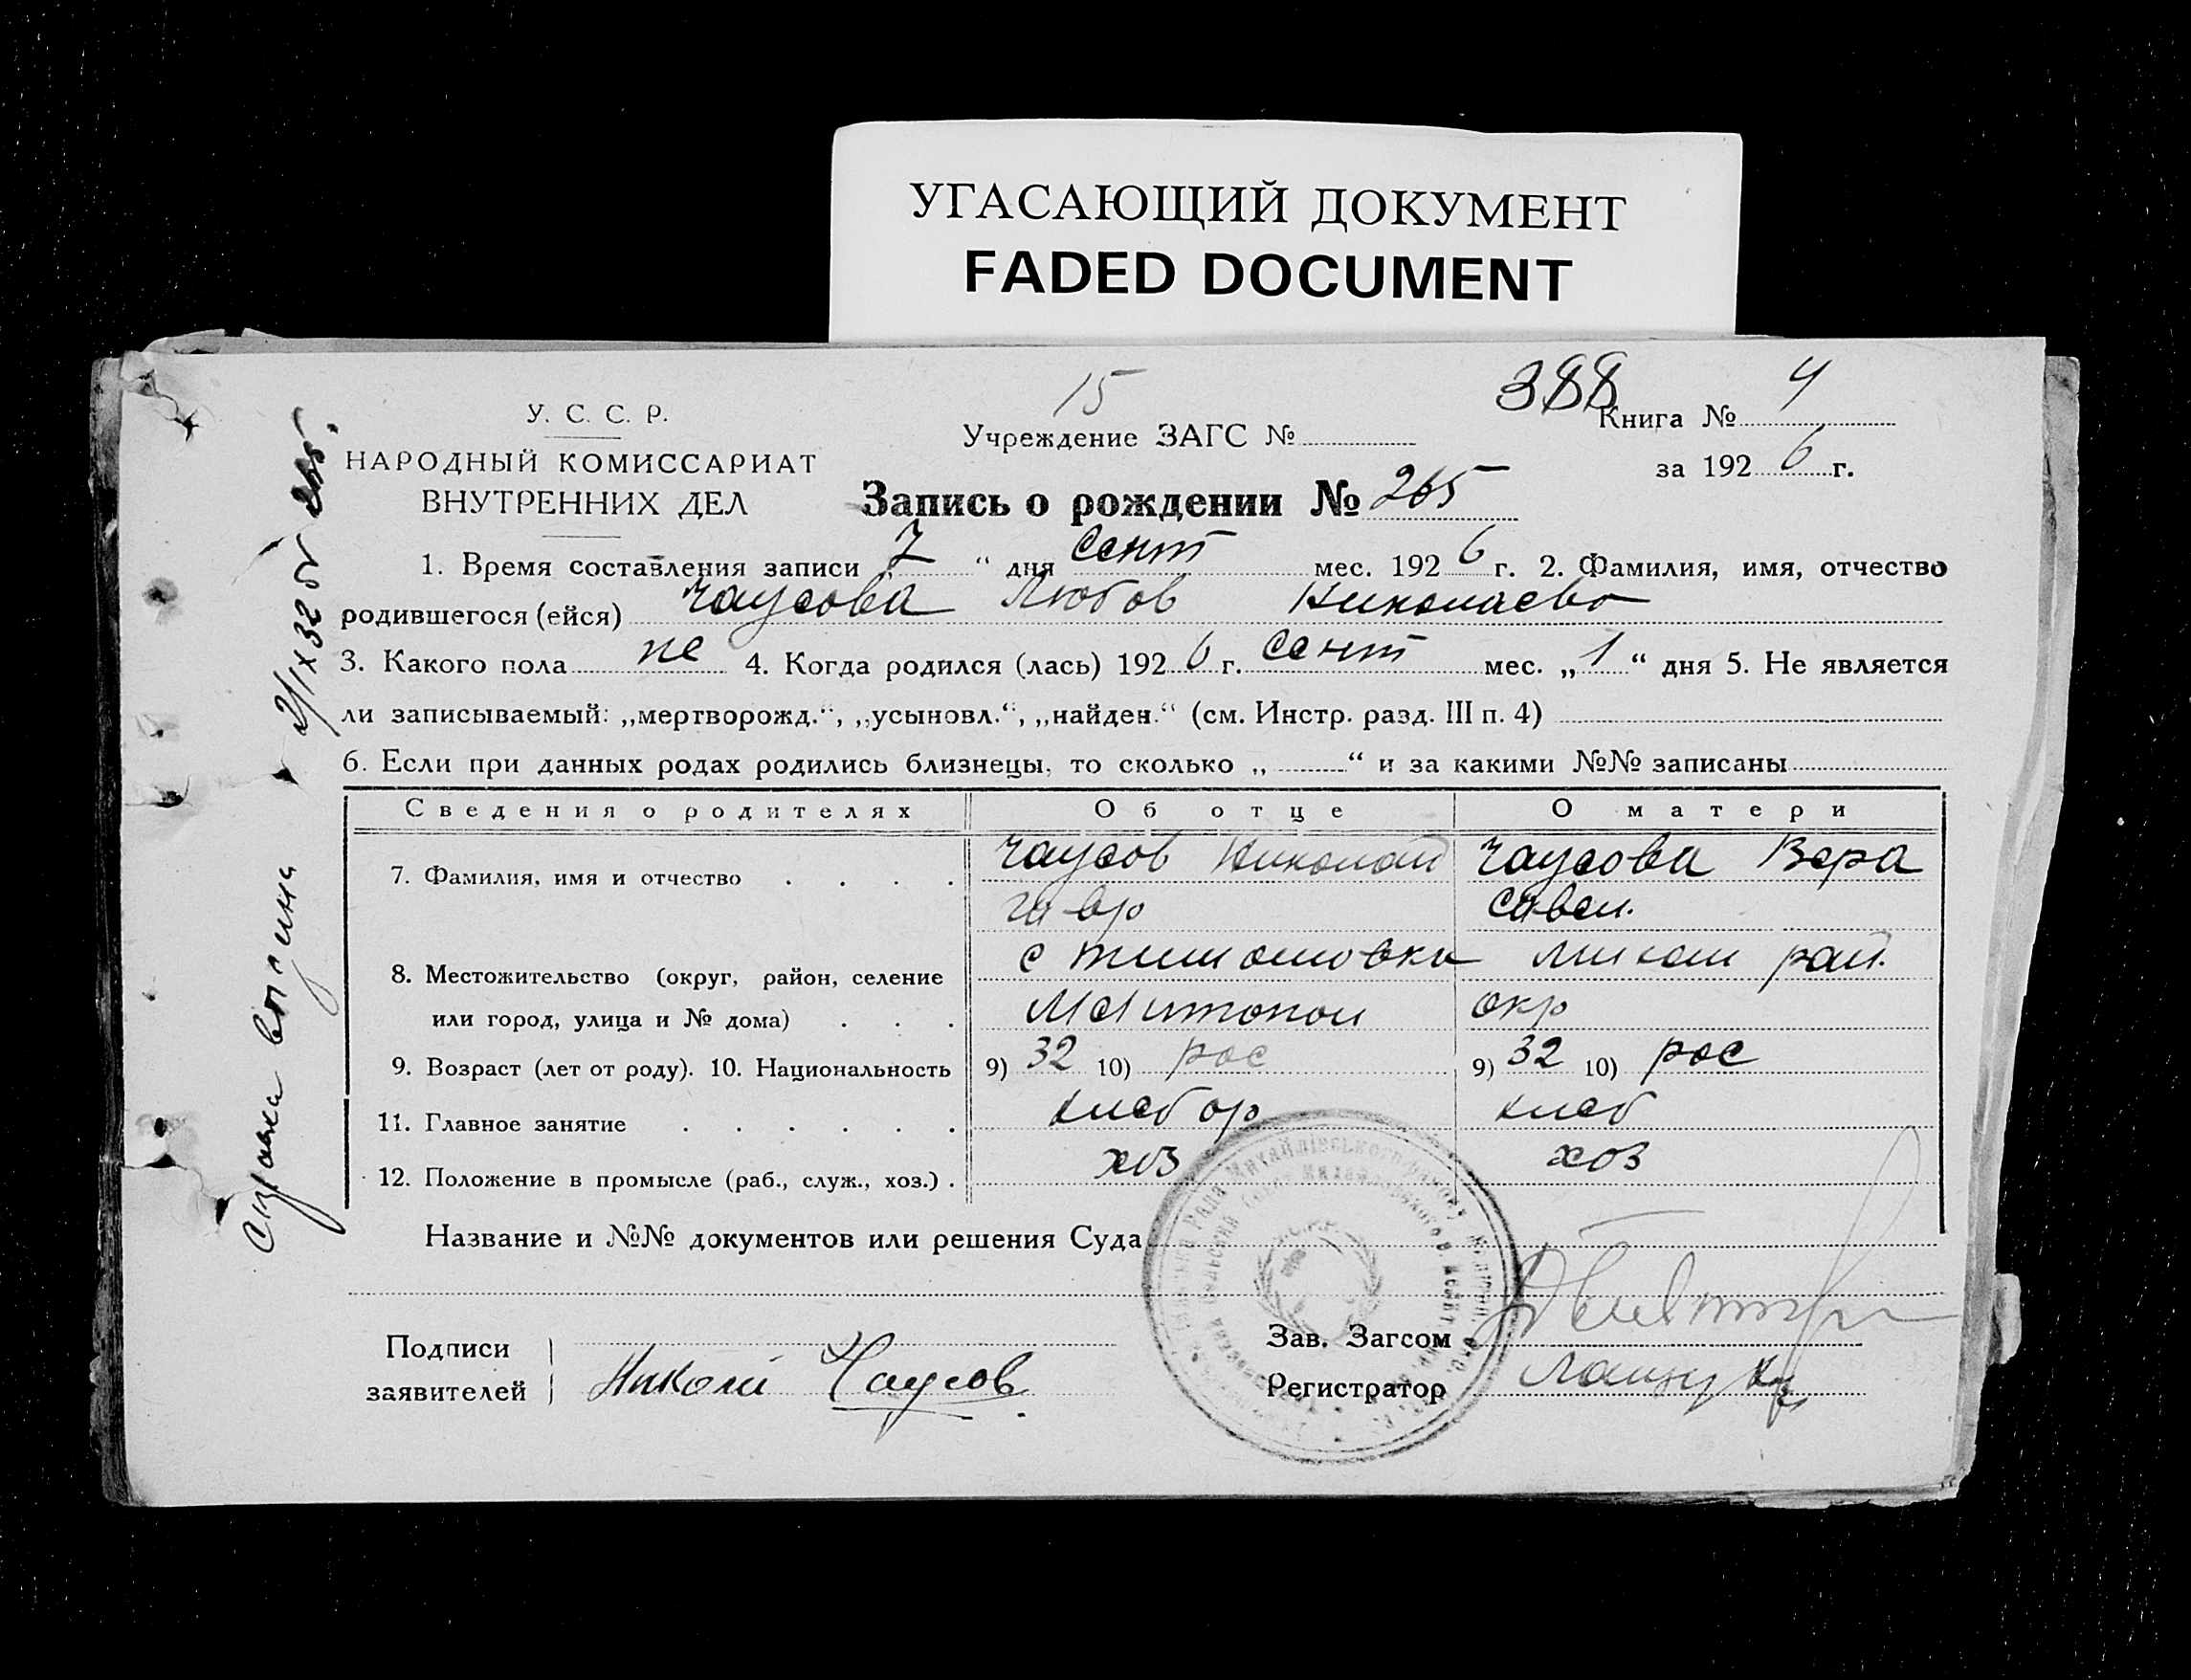 УГАСАЮЩИЙ ДОКУМЕНТ
FADED DOCUMENT
388
15
У. С. С. Р.
НАРОДНЫЙ КОМИССАРИАТ
ВНУТРЕННИХ ДЕЛ
Учреждение ЗАГС №
Книга № 4
за 1926 г.
Запись о рождении № 265
1. Время составления записи „7“ дня сент мес. 1926 г. 2. Фамилия, имя, отчество
родившегося (ейся) Чаусова Любов Николаевн
3. Какого пола же 4. Когда родился (лась) 1926 г. сент мес. „1“ дня 5. Не является
ли записываемый: „мертворожд.“, „усыновл.“, „найден.“ (см. Инстр. разд. III п. 4)
6. Если при данных родах родились близнецы, то сколько „ “ и за какими №№ записаны
Сведения о родителях Об отце О матери
7. Фамилия, имя и отчество Чаусов Николай Чаусова Вера
Гавр Савел.
8. Местожительство (округ, район, селение с Тимошовки Михайл рай.
или город, улица и № дома) Мелитопол окр
9. Возраст (лет от роду). 10. Национальность 9) 32 10) рос 9) 32 10) рос
11. Главное занятие хлебор хлеб
12. Положение в промысле (раб., служ., хоз.) хоз хоз
Название и №№ документов или решения Суда
Подписи
заявителей Николай Чаусов
Зав. Загсом
Регистратор
Справка выдана 2/IX 32